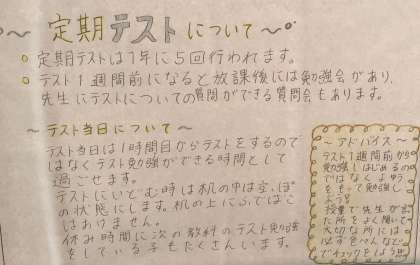 〜定期テストについて〜
定期テストは1年に5回行われます。
テスト1週間前になると放課後には勉強会があり、
先生にテストについての質問ができる質問会もあります。
〜テスト当日について〜
テスト当日は1時間目からテストをするので
はなくテスト勉強ができる時間として
過ごせます。
テストにいどむ時は机の中は空っぽ
の状態にします。机の上にふでばこ
はおけません。
休み時間に次の教科のテスト勉強
をしている子もたくさんいます。
〜アドバイス〜
テスト1週間前から
勉強しはじめる
のではなくよゆう
をもって勉強し
よう!!
授業で先生が言
った所をよく聞いて
大切な所には
必ずけいペンなど
でチェックをしよう!!